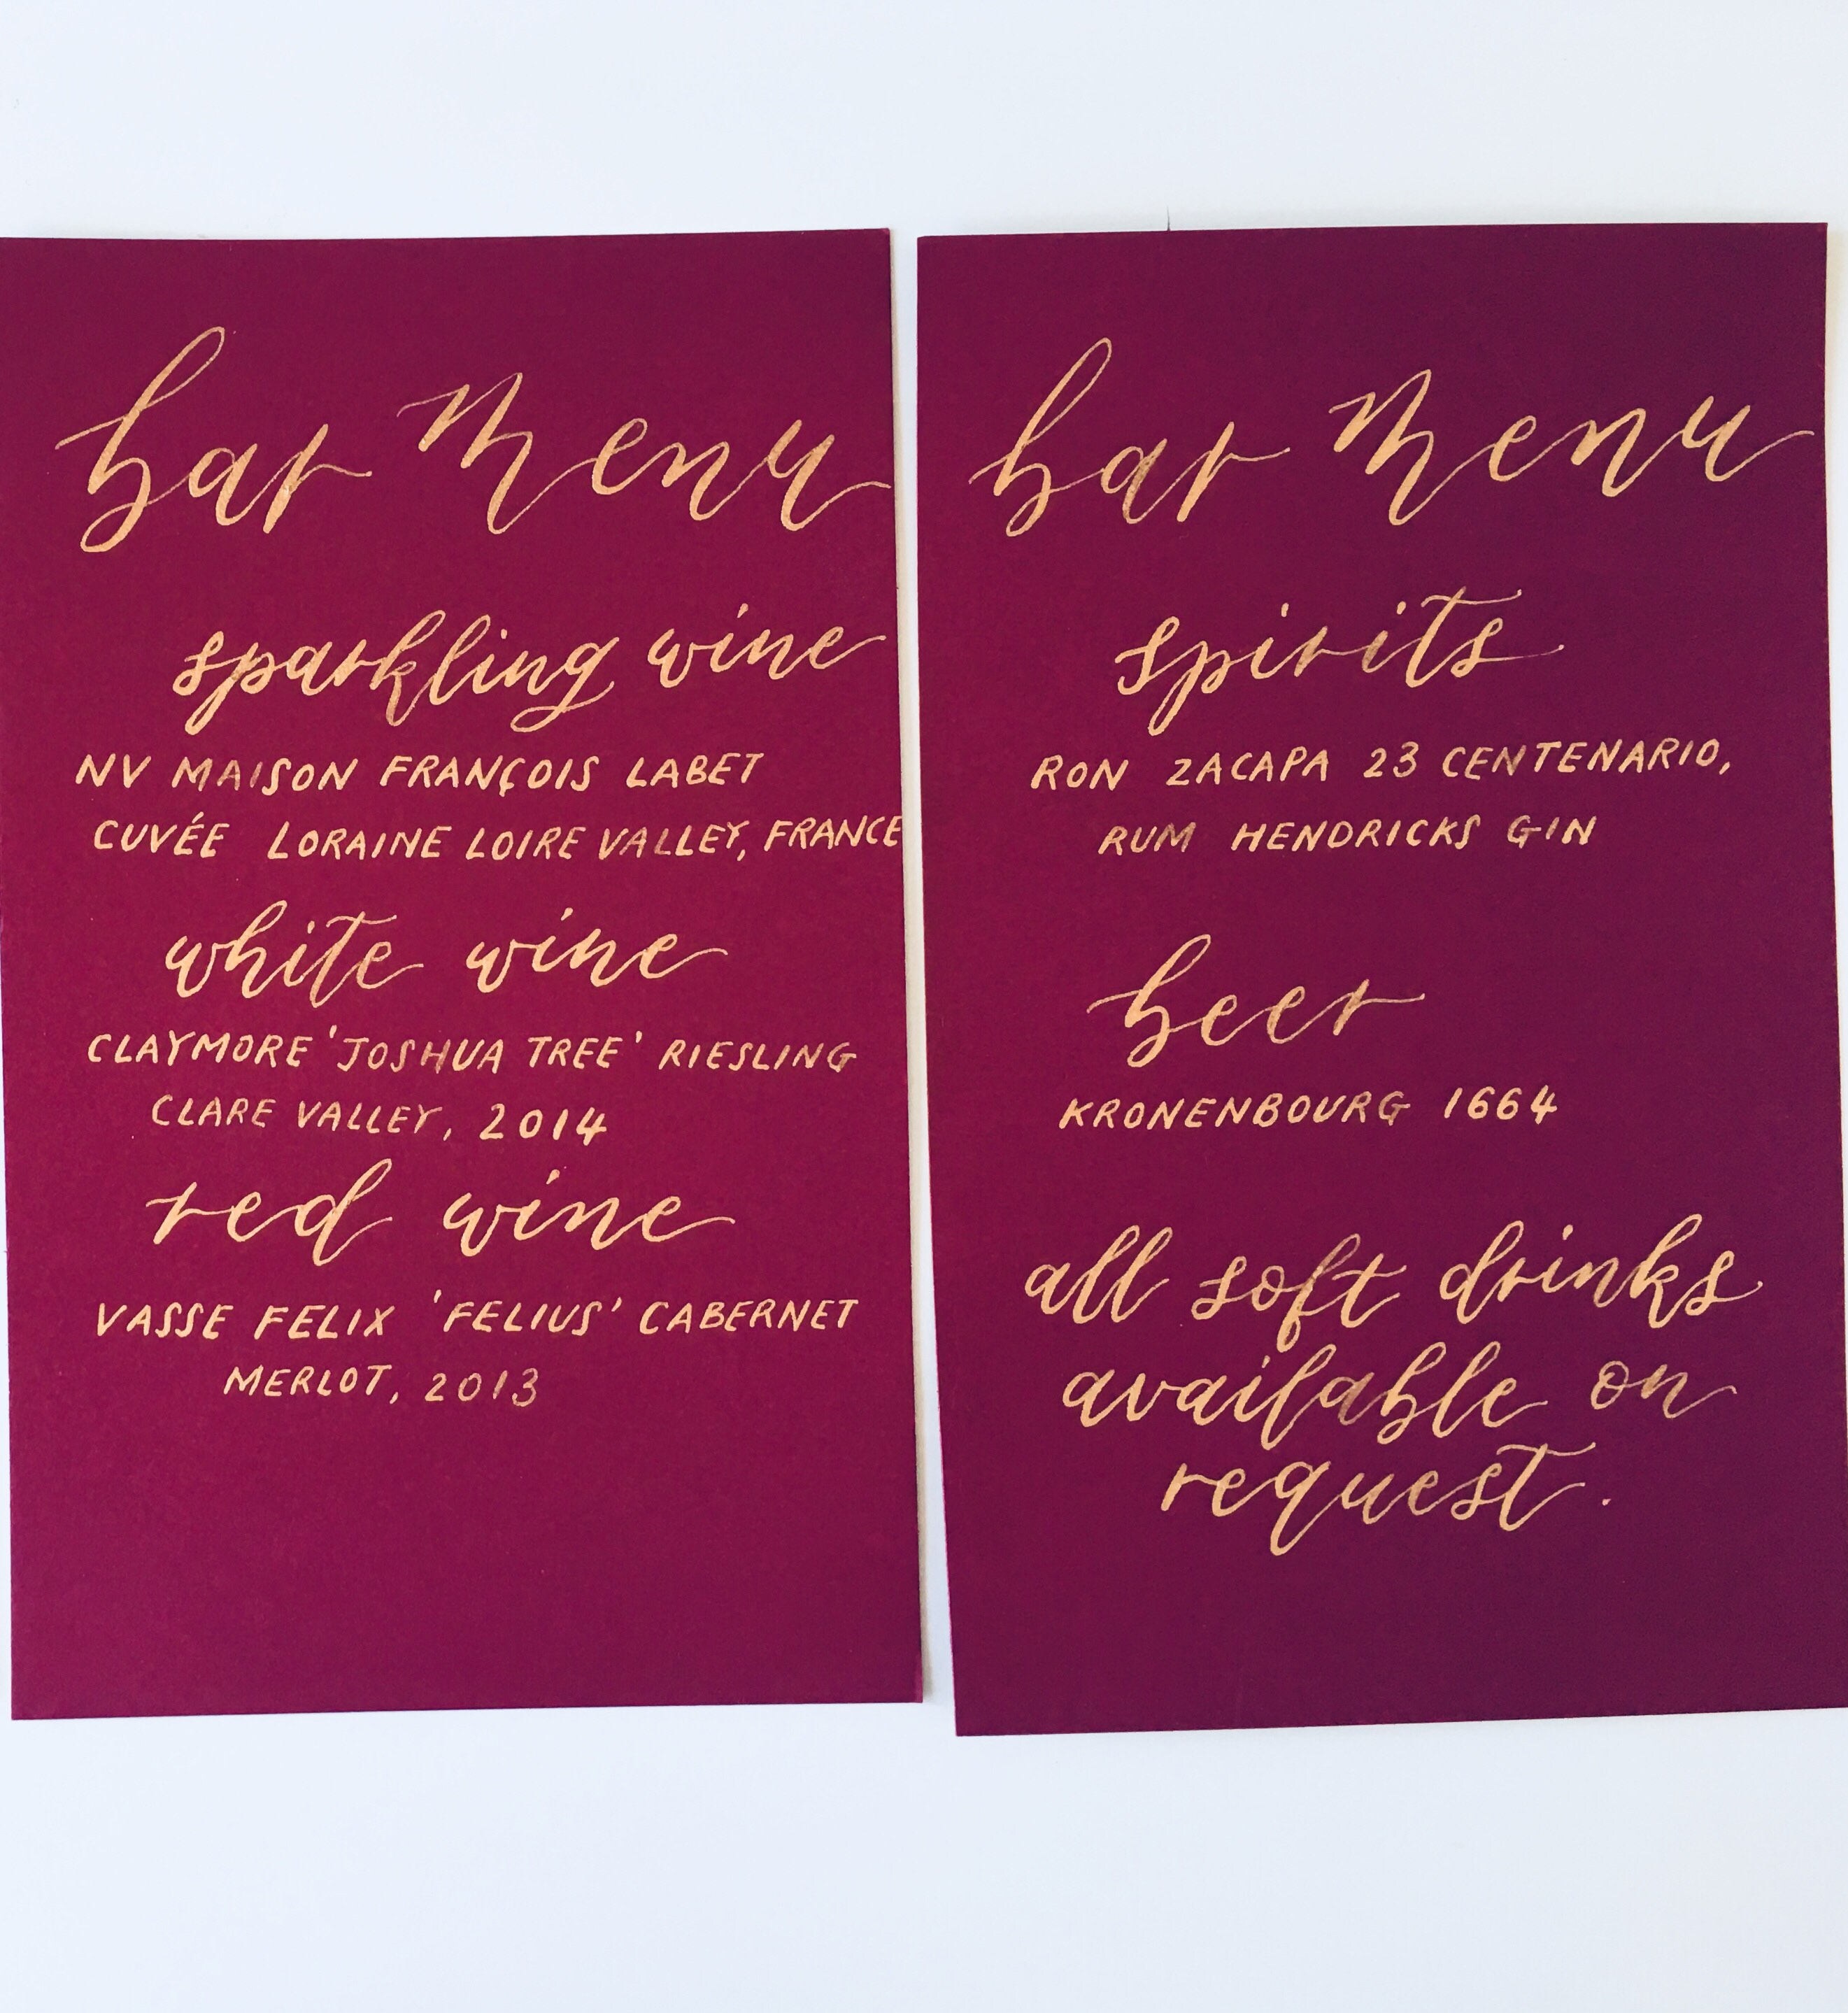 bar Menu
sparkling wine
NV MAISON FRANÇOIS LABET
CUVÉE LORAINE LOIRE VALLEY, FRANCE
white wine
CLAYMORE 'JOSHUA TREE' RIESLING
CLARE VALLEY, 2014
red wine
VASSE FELIX 'FELIUS' CABERNET
MERLOT, 2013
bar Menu
spirits
RON ZACAPA 23 CENTENARIO,
RUM HENDRICKS GIN
beer
KRONENBOURG 1664
all soft drinks
available on
request.